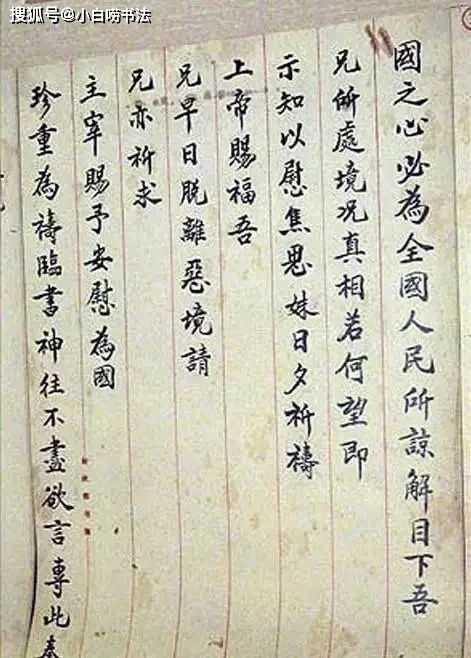 搜狐号@小白唠书法
國之心必為全國人民所諒解目下吾
兄所處境况真相若何望即
示知以慰焦思妹日夕祈禱
上帝賜福吾
兄早日脱離惡境請
兄亦祈求
主宰賜予安慰為國
珍重為禱臨書神往不盡欲言專此奉